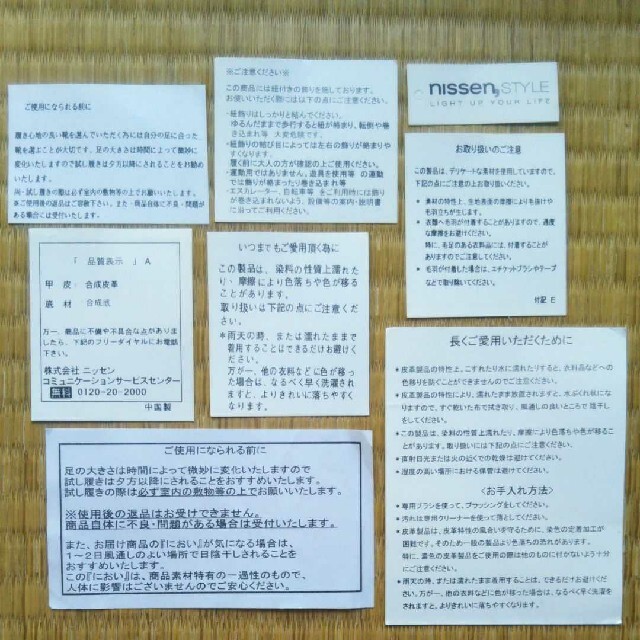 ご使用になられる前に
履き心地の良い靴を選んでいただく為には自分の足に合った
靴を選ぶことが大切です。足の大きさは時間によって微妙に
変化いたしますので試し履きは夕方以降にされることをお勧め
いたします。
尚・試し履きの際は必ず室内の敷物等の上でお願いいたします。
※ご使用後の返品はご容赦下さい。また・商品自体に不良・問題が
ある場合は受付いたします。
※ご注意ください※
この商品には紐付きの飾りを施しております。
お使いいただく際には以下の点にご注意ください。
・紐飾りはしっかりと結んでください。
ゆるんだままで歩行すると紐が締まり、転倒や巻
き込まれ等 大変危険です。
・紐飾りの結び目によっては左右の飾りが絡まりや
すくなります。
履く前に大人の方が確認の上ご使用ください。
・運動用ではありません。遊具を使用等 の運動
では飾りが絡まったり巻き込まれ等
・エスカレーター、自転車等 をご利用時には飾り
が巻き込まれないよう、設備等の案内・説明書
に沿ってご利用ください。
nissen,STYLE
LIGHT UP YOUR LIFE
お取り扱いのご注意
この製品は、デリケートな素材を使用していますので、
下記の点にご注意の上お取り扱いください。
• 素材の特性上、生地表面の摩擦により毛抜けや
毛羽立ちが生じます。
• 衣服へ毛羽が付着することがありますので、過度
な摩擦をお避けください。
特に、毛足のある衣料品には、付着することが
ありますのでご注意してください。
• 毛羽が付着した場合は、エチケットブラシやテープ
などで取り除いてください。
付記 E
「 品質表示 」A
甲 皮: 合成皮革
底 材: 合成底
万一、商品に不備や不具合な点がありま
したら、下記のフリーダイヤルにお電話
下さい。
株式会社 ニッセン
コミュニケーションサービスセンター
無料 0120-20-2000
中国製
いつまでもご愛用頂く為に
この製品は、染料の性質上濡れた
り、摩擦により色落ちや色が移る
ことがあります。
取り扱いは下記の点にご注意くだ
さい。
*雨天の時、または濡れたままで
着用することはできるだけお避けく
ださい。
万が一、他の衣料などに色が移っ
た場合は、なるべく早く洗濯されま
すと、よりきれいに落ちやすくなり
ます。
長くご愛用いただくために
• 皮革製品の特性上、こすれたり水に濡れたりすると、衣料品などへの
色移りを防ぐことができませんのでご注意ください。
• 皮革製品の特性により、濡れたまま放置されますと、水ぶくれ状にな
りますので、すぐ乾いた布で拭き取り、風通しの良いところで陰干し
をしてください。
• この製品は、染料の性質上濡れたり、摩擦により色落ちや色が移ること
があります。取り扱いには下記の点にご注意ください。
• 直射日光または火の近くでの乾燥は避けてください。
• 湿度の高い場所における保管は避けてください。
<お手入れ方法>
• 専用ブラシを使って、ブラッシングをしてください。
• 汚れは専用クリーナーを使って落としてください。
• 皮革製品は、皮革特性の風合いを守るために、染色の定着加工が
困難です。そのため一般の製品より色落ちの恐れがあります。
特に、濃色の皮革製品をご使用の際は他のものに付かないよう十分
にご注意ください。
• 雨天の時、または濡れたまま着用することは、できるだけお避けくだ
さい。万が一、他の衣料などに色が移った場合は、なるべく早く洗濯を
されますと、よりきれいに落ちやすくなります。
ご使用になられる前に
足の大きさは時間によって微妙に変化いたしますので
試し履きは夕方以降にされることをおすすめいたします。
試し履きの際は必ず室内の敷物等の上でお願いいたします。
※使用後の返品はお受けできません。
商品自体に不良・問題がある場合は受付いたします。
また、お届け商品の『におい』が気になる場合は、
1～2日風通しのよい場所で日陰干しされることを
おすすめいたします。
この『におい』は、商品素材特有の一過性のもので、
人体に影響はございませんのでご安心ください。